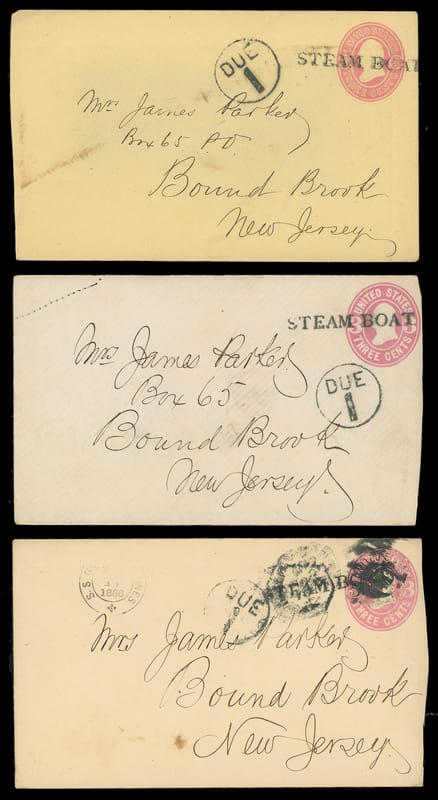 DUE
1
STEAM BOAT
Mrs James Parker
Box 65 P.O.
Bound Brook
New Jersey.
STEAM BOAT
UNITED STATES
THREE CENTS
Mrs James Parker
DUE
1
Box 65
Bound Brook
New Jersey.
1866
DUE
STEAM BO
THREE CENTS
Mrs James Parker
Bound Brook
New Jersey